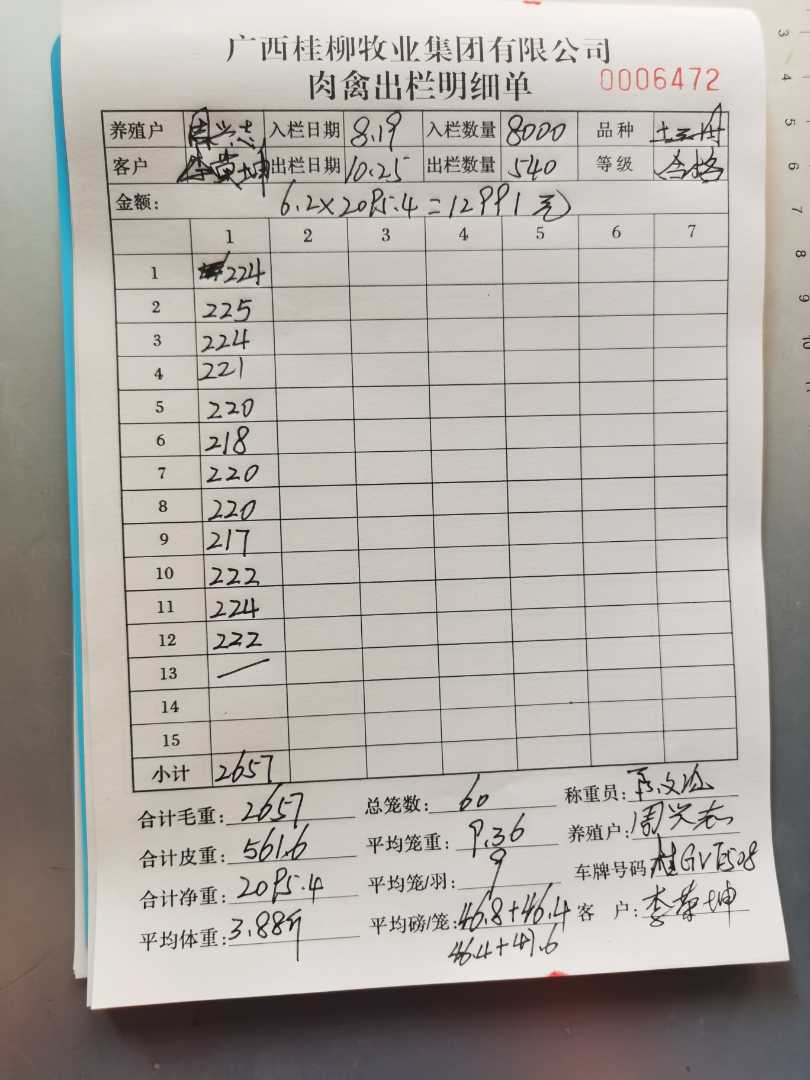 广西桂柳牧业集团有限公司
肉禽出栏明细单 0006472
养殖户 周兴志 入栏日期 8.19 入栏数量 8000 品种
客户 李荣坤 出栏日期 10.25 出栏数量 540 等级 合格
金额: 6.2×2095.4=12991元
1 2 3 4 5 6 7
1 224
2 225
3 224
4 221
5 220
6 218
7 220
8 220
9 217
10 222
11 224
12 222
13 /
14
15
小计 2657
合计毛重: 2657 总笼数: 60 称重员:
合计皮重: 561.6 平均笼重: 9.36 养殖户: 周兴志
合计净重: 2095.4 平均笼/羽: 9 车牌号码 桂GVE508
平均体重: 3.88斤 平均磅/笼: 46.8+46.4 客 户: 李荣坤
46.4+47.6
3 4 5 6 7 8 9 10